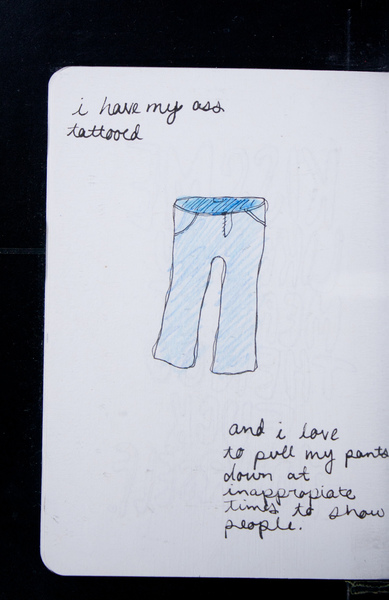 i have my ass
tattooed
and i love
to pull my pants
down at
inappropiate
times to show
people.